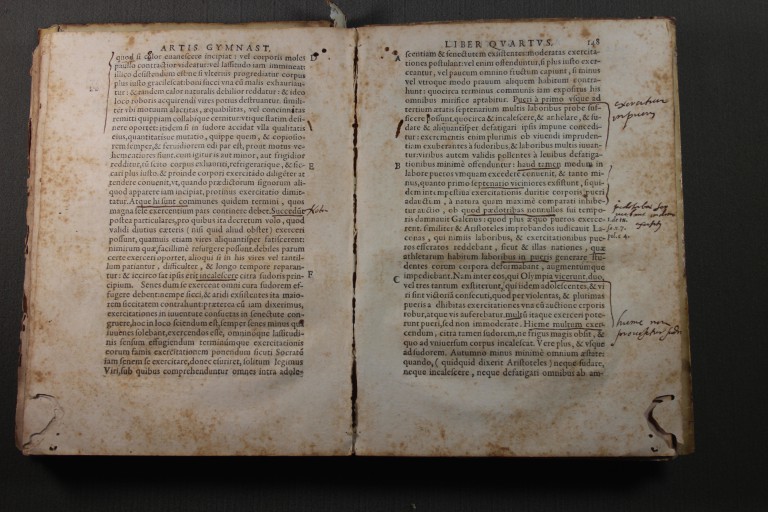 ARTIS GYMNAST.
quod si calor euanescere incipiat: vel corporis moles
paullo contractior videatur: vel lassitudo iam immineat
illico desistendum est: ne si vlterius progrediatur corpus
plus iusto gracilescat: boni succi vna cū malis exhauriantur
: & eandem calor naturalis debilior reddatur: & ideo
loco roboris acquirendi vires potius destruantur. simili-
ter vbi motuum alacritas, æqualitas, vel concinnitas
remitti quippiam collabique cernitur vtique statim desi-
nere oportet: itidem si in sudore accidat vlla qualitatis
eius, quantitatisue mutatio, quippe quem, & copiosio-
rem semper, & feruidiorem edi par est, prout motus ve-
hementiores fiunt. cum igitur is aut minor, aut frigidior
redditur, tū scito corpus exhauriri, refrigerarique, & sic-
cari plus iusto. & proinde corpori exercitādo diligēter at
tendere conuenit, vt, quando prædictorum signorum ali-
quod apparere iam incipiat, protinus exercitatio dimit-
tatur. Atque hi sunt communes quidem termini, quos
magna sese exercentium pars continere debet. Succedūt
postea particulares, pro quibus ita decretum volo, quod
validi diutius cæteris (nisi quid aliud obstet) exerceri
possunt, quamuis etiam vires aliquantisper fatiscerent:
nimirum quæ facillimè resurgere possunt. debiles parum
certe exerceri oportet, alioqui si in his vires vel tantil-
lum patiantur, difficulter, & longo tempore reparan-
tur: & iccirco sat ipsis erit incalescere citra sudoris prin-
cipium. Senes dum se exerceant omni cura sudorem ef-
fugere debent: nempe sicci, & aridi exsistentes ita maio-
rem siccitatem contrahunt: præterea cū iam dixerimus,
exercitationes in iuuentute consuetas in senectute con-
gruere, hoc in loco sciendum est, semper senes minus quā
iuuenes solebant, exercendos esse, omninoque lassitudi-
nis sensum effugiendum terminumque exercitationis
eorum famis exercitationem ponendum sicuti Socratē
iam senem se exercitare, donec esuriret, solitum legimus
Viri, sub quibus comprehenduntur omnes intra adole-
D
E
F
LIBER QVARTVS. 148
scentiam & senectutem exsistentes moderatas exercita-
tiones postulant: vel enim offenduntur, si plus iusto exer-
ceantur, vel paucum omnino fructum capiunt, si minus
vel vtroque modo prauum aliquem habitum contra-
hunt: quocirca terminus communis iam expositus his
omnibus mirifice aptabitur. Pueri à primo vsque ad
tertium ætatis septenarium multis laboribus probe suf-
ficere possunt, quocirca & incalescere, & anhelare, & su-
dare & aliquantisper defatigari ipsis impune concedi-
tur: exerceri enim plurimis ob viuendi imprudenti-
am exuberantes à sudoribus, & laboribus multis iuuan-
tur: viribus autem validis pollentes à leuibus defatiga-
tionibus minimè offenduntur: haud tamen modum in
labore pueros vmquam excedere conuenit, & tanto mi-
nus, quanto primo septenario viciniores exsistunt, siqui-
dem intempestiua exercitationis duritie corporis pueri
adauctum, à natura quam maximè comparati inhibe-
tur auctio, ob quod pædotribas nonnullos sui tempo-
ris damnauit Galenus: quod plus æquo pueros exerce-
rent. similiter & Aristoteles improbandos iudicauit La-
cenas, qui nimiis laboribus, & exercitationibus pue-
ros efferatos reddebant, sicut & illas nationes, quæ
athletarum habitum laboribus in pueris generare stu-
dentes eorum corpora deformabant, augmentumque
impediebant. Nam inter eos, qui Olympia vicerunt, duo,
vel tres tantum exstiterunt, qui iidem adolescentes, & vi
ri sint victoriā consecuti, quod per violentas, & plurimas
pueris adhibitas exercitationes vna cū auctione corporis
robur, atque vis auferebatur. multū itaque exerceri pote-
runt pueri, sed non immoderate. Hieme multum exer-
cendum, citra tamen sudorem, ne frigus magis obsit, &
quo ad vniuersum corpus incalescat. Vere plus, & vsque
ad sudorem. Autumno minus minimè omnium æstate:
quando, (quidquid dixerit Aristoteles) neque sudare,
neque incalescere, neque defatigari omnibus ab am-
A
B
C